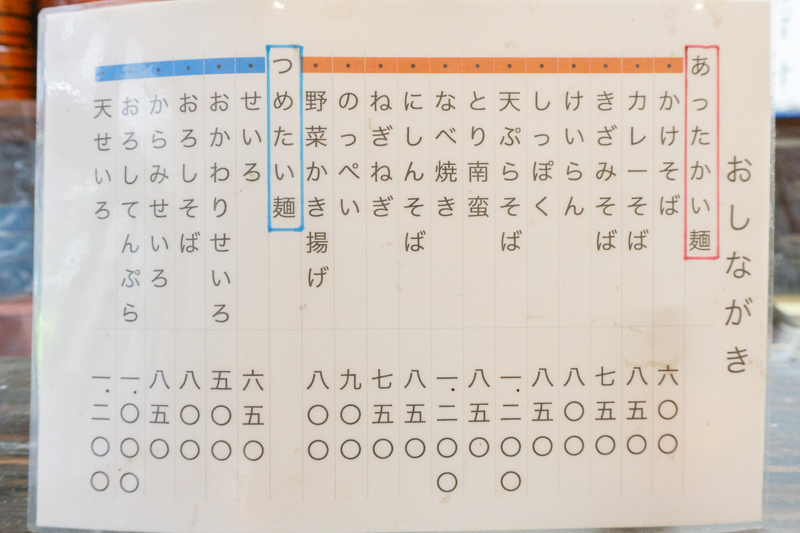 おしながき
あったかい麺
かけそば 六〇〇
カレーそば 八五〇
きざみそば 七五〇
けいらん 八〇〇
しっぽく 八五〇
天ぷらそば 一.二〇〇
とり南蛮 八五〇
なべ焼き 一.二〇〇
にしんそば 八五〇
ねぎねぎ 七五〇
のっぺい 九〇〇
野菜かき揚げ 八〇〇
つめたい麺
せいろ 六五〇
おかわりせいろ 五〇〇
おろしそば 八〇〇
からみせいろ 八五〇
おろしてんぷら 一.〇〇〇
天せいろ 一.二〇〇